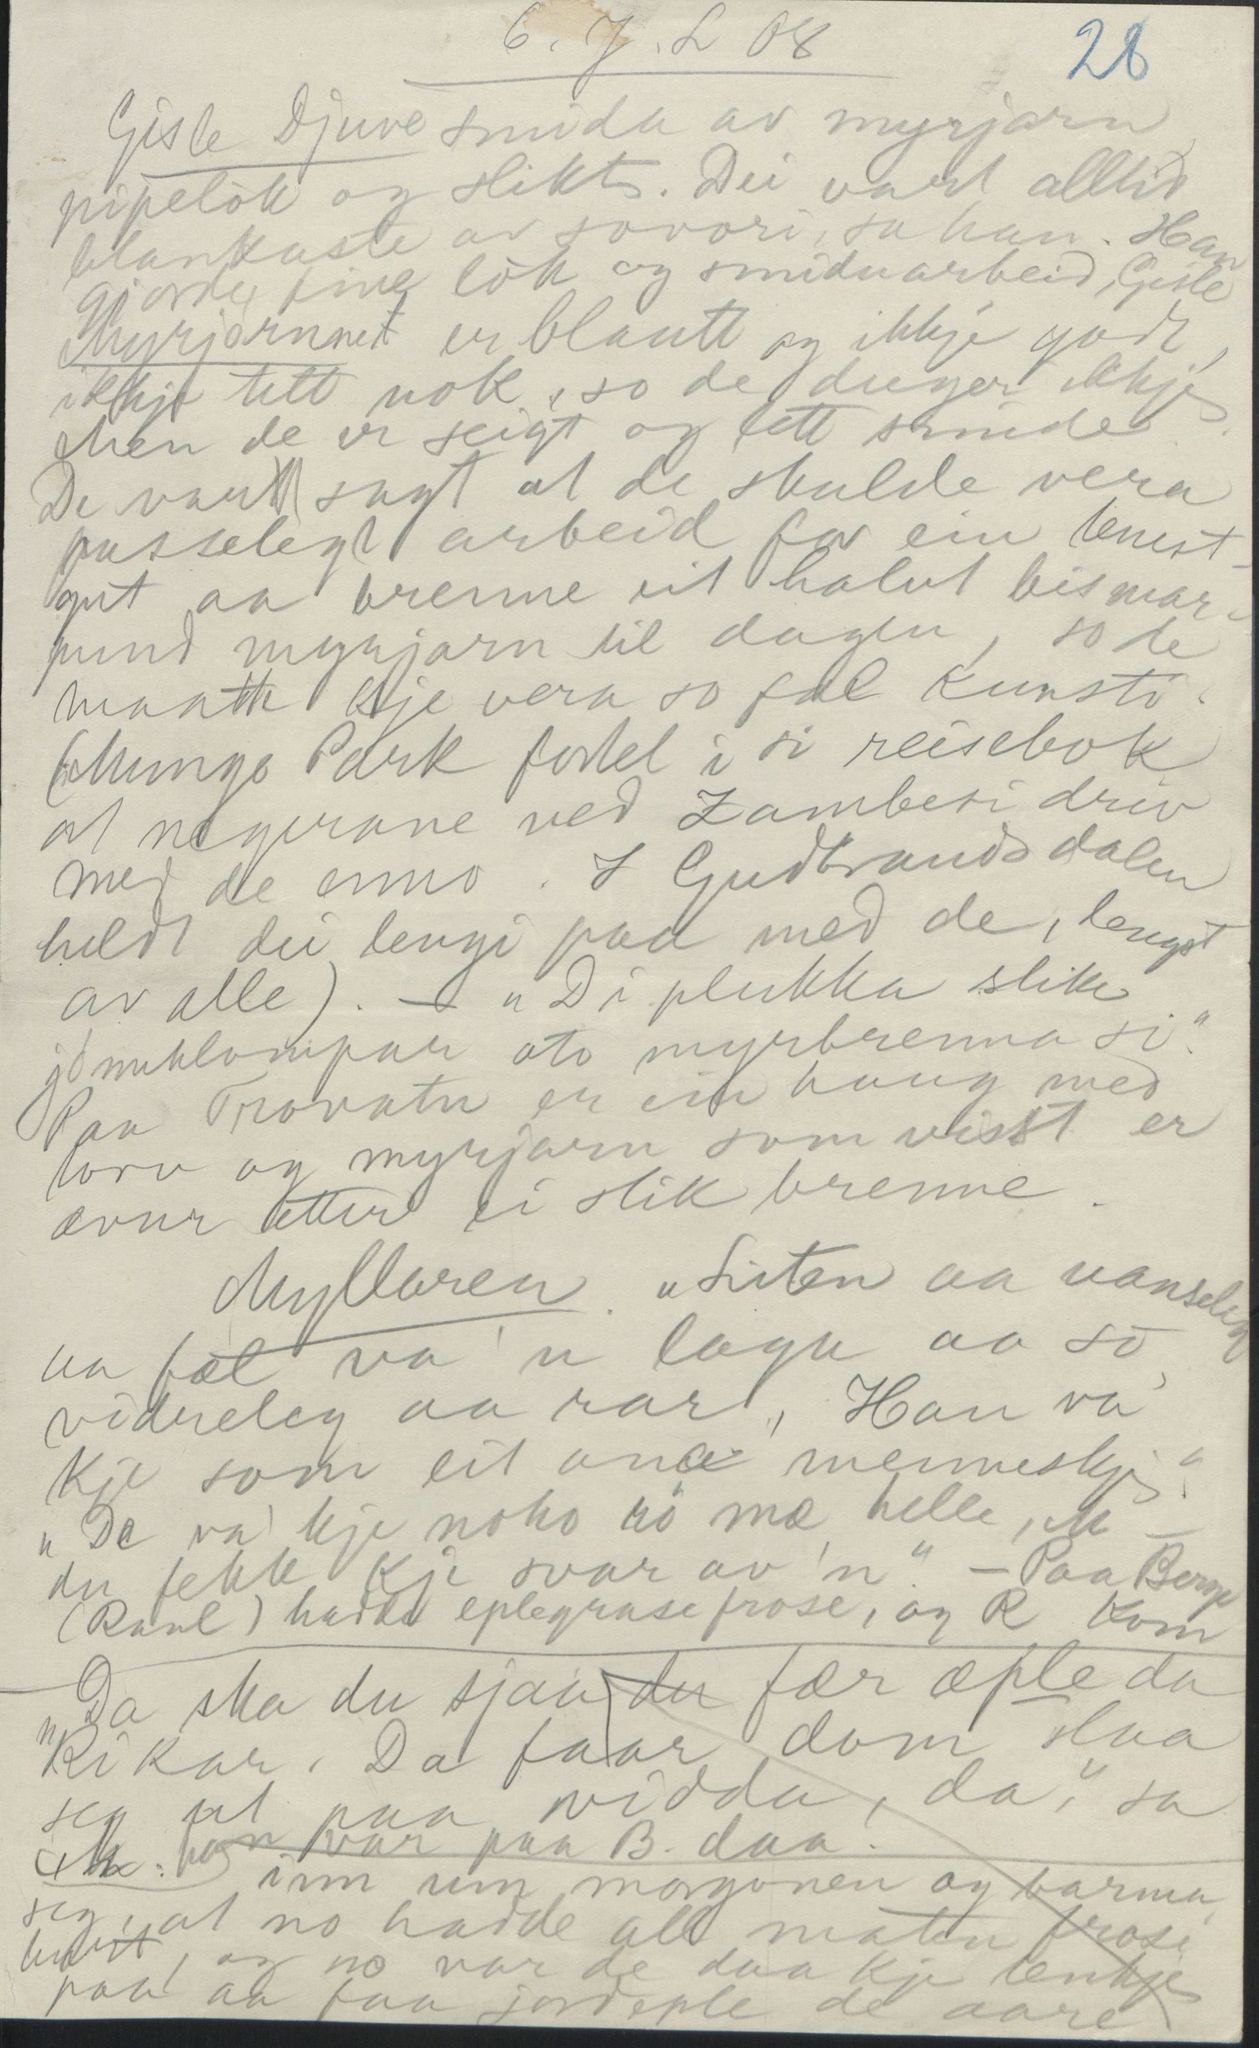 6. J. L 08
28
Gisle Djuve smida av myrjarn
pipelok og slikt. Dei vart alltid
blankaste av sovori, sa han. Han
gjorde fine lök og smiduarbeid, Gisle
Myrjarnnet er blautt og ikkje godt,
ikkje tett nok, so de duger ikkje,
men de er seigt og lett smide.
De vart sagt at de skulde vera
passelegt arbeid for ein tenest-
gut aa brenne eit halvt bismar-
pund myrjarn til dagen, so de
maatte kje vera so fæl kunsti.
(Mungo Park fortel i si reisebok
at negerane ved Zambesi driv
med de enno. I Gudbrandsdalen
heldt dei lengi paa med de, lengst
av alle). — "Di plukka slike
jönnklompar oto myrbrenna si."
Paa Trovatn er ein haug med
torv og myrjarn som visst er
avur etter ei slik brenne.
Myllaren. "Liten aa vanseleg
aa fæl va 'n laga aa so
vidreleg aa rar", "Han va
kje som eit ana menneskje".
"De va kje noko ro mæ helle, M —
du fekk kje svar av 'n." — Paa Berge
(Raul) hadde eplegrase frose, og R kom
"Da ska du sjaa du fær æple da
Rikar. Da faar dom slaa
seg ut paa vidda, da," sa
M: han var paa B. daa.
inn um morgonen og barma
seg, at no hadde all maten frose
burt, og no var de daa kje tenkje
paa aa faa jordeple de aare